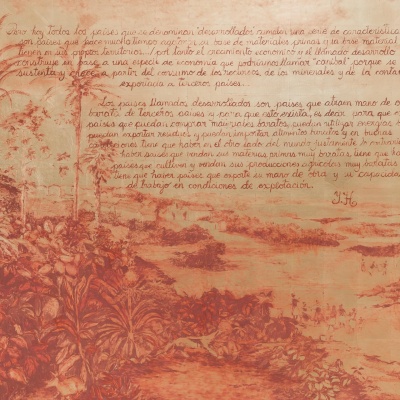 Para hoy todos los países que se denominan desarrollados cumplen una serie de características
son países que hace mucho tiempo agotaron su base de materias primas y su base material
tienen en sus propios territorios. Por tanto el crecimiento económico en el llamado desarrollo
construye en base a una especie de economía que podríamos llamar "caníbal" porque se
sustenta y crece a partir del consumo de los recursos, de los minerales y de la conta
exportación a terceros países.
Los países llamados desarrollados son países que atraen mano de o
barata de terceros países y para que esto exista, es decir para que e
países que puedan comprar materiales baratos, puedan utilizar energías
puedan exportar residuos y puedan importar alimentos baratos y en buenas
condiciones tiene que haber en el otro lado del mundo justamente lo contrario
haber países que vendan sus materias primas muy baratas, tiene que ha
países que cultiven y vendan sus producciones agrícolas muy baratas
tiene que haber países que exporte su mano de obra y su capacidad
de trabajo en condiciones de explotación.
Y.H.